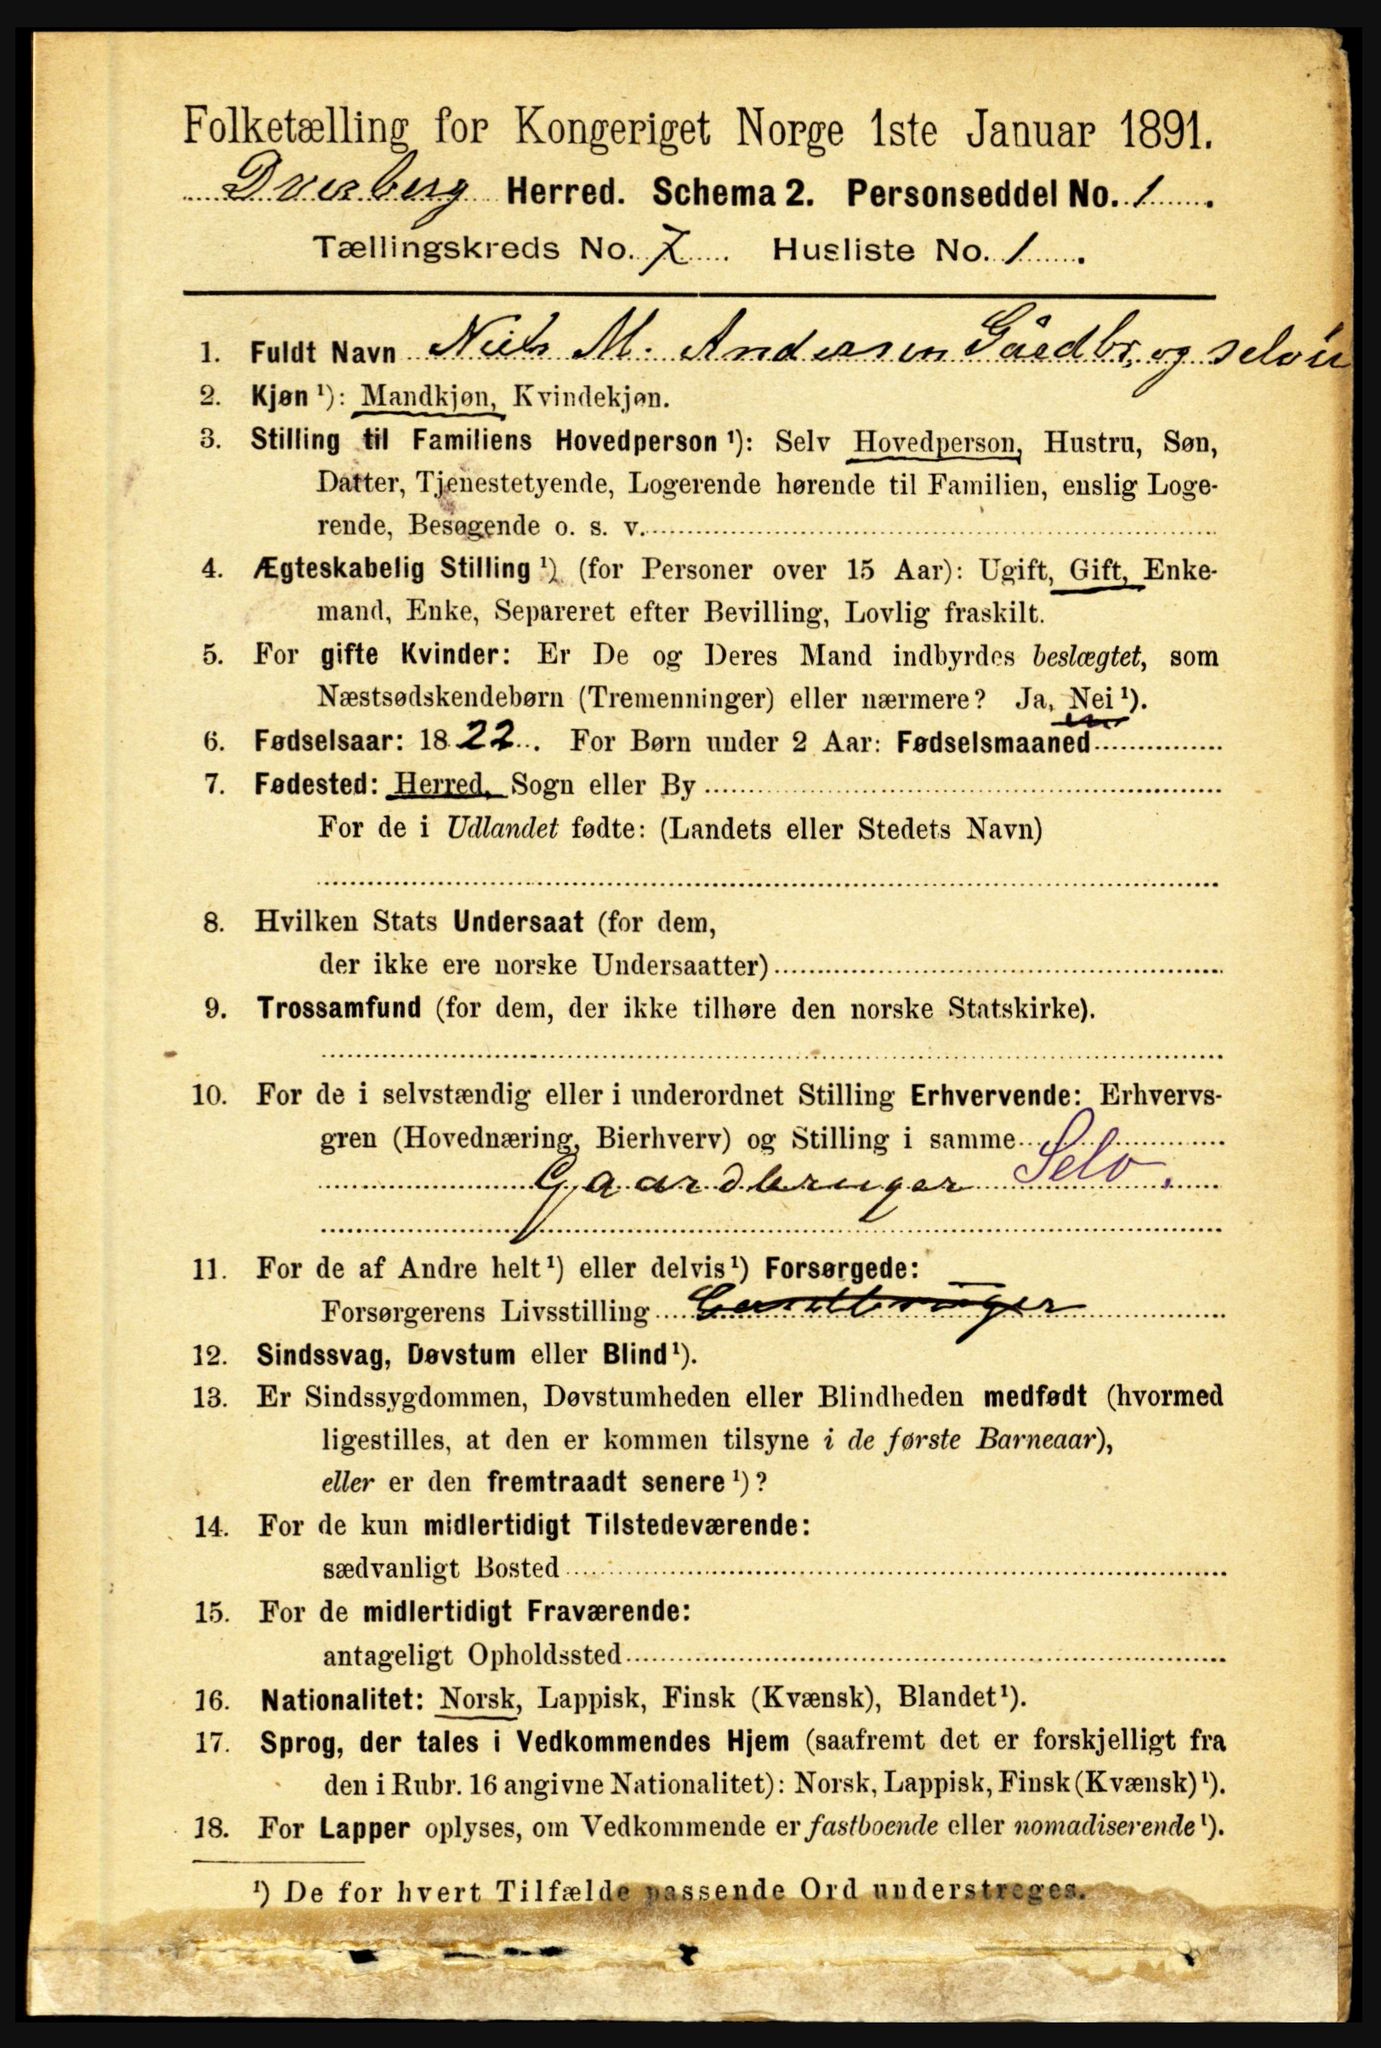 Folketælling for Kongeriget Norge 1ste Januar 1891.
Dverberg Herred. Schema 2. Personseddel No. 1.
Tællingskreds No. 7. Husliste No. 1.
1. Fuldt Navn Niels M. Andersen Gårdbr. og selvei
2. Kjøn ¹): Mandkjøn, Kvindekjøn.
3. Stilling til Familiens Hovedperson ¹): Selv Hovedperson, Hustru, Søn,
Datter, Tjenestetyende, Logerende hørende til Familien, enslig Loge-
rende, Besøgende o. s. v.
4. Ægteskabelig Stilling ¹) (for Personer over 15 Aar): Ugift, Gift, Enke-
mand, Enke, Separeret efter Bevilling, Lovlig fraskilt.
5. For gifte Kvinder: Er De og Deres Mand indbyrdes beslægtet, som
Næstsødskendebørn (Tremenninger) eller nærmere? Ja, Nei ¹).
6. Fødselsaar: 1822. For Børn under 2 Aar: Fødselsmaaned
7. Fødested: Herred, Sogn eller By
For de i Udlandet fødte: (Landets eller Stedets Navn)
8. Hvilken Stats Undersaat (for dem,
der ikke ere norske Undersaatter)
9. Trossamfund (for dem, der ikke tilhøre den norske Statskirke).
10. For de i selvstændig eller i underordnet Stilling Erhvervende: Erhvervs-
gren (Hovednæring, Bierhverv) og Stilling i samme
Gaardbruger Selv.
11. For de af Andre helt ¹) eller delvis ¹) Forsørgede:
Forsørgerens Livsstilling Gaardbruger
12. Sindssvag, Døvstum eller Blind ¹).
13. Er Sindssygdommen, Døvstumheden eller Blindheden medfødt (hvormed
ligestilles, at den er kommen tilsyne i de første Barneaar),
eller er den fremtraadt senere ¹)?
14. For de kun midlertidigt Tilstedeværende:
sædvanligt Bosted
15. For de midlertidigt Fraværende:
antageligt Opholdssted
16. Nationalitet: Norsk, Lappisk, Finsk (Kvænsk), Blandet ¹).
17. Sprog, der tales i Vedkommendes Hjem (saafremt det er forskjelligt fra
den i Rubr. 16 angivne Nationalitet): Norsk, Lappisk, Finsk (Kvænsk) ¹).
18. For Lapper oplyses, om Vedkommende er fastboende eller nomadiserende ¹).
¹) De for hvert Tilfælde passende Ord understreges.